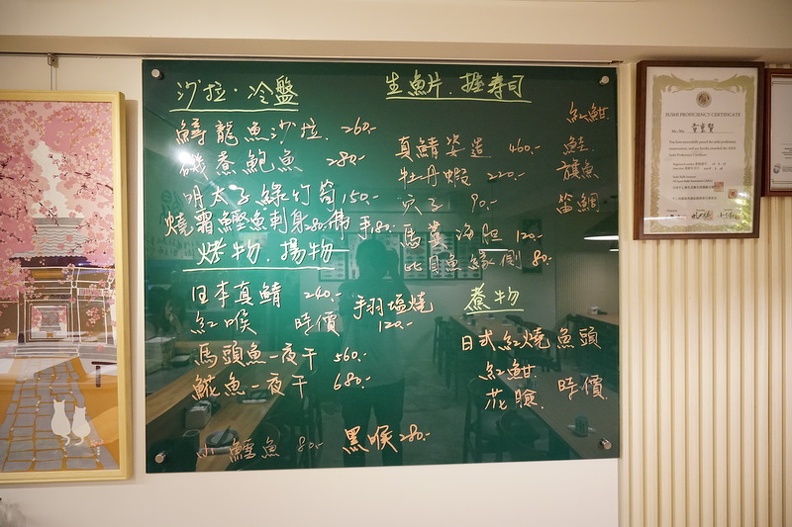 沙拉.冷盤
鱘龍魚沙拉. 260.-
磯煮鮑魚 280.-
明太子綠竹筍150.-
燒霜鰹魚刺身280.
烤物.揚物
日本真鯖 240.-
紅喉 時價
手羽塩燒
120.-
馬頭魚一夜干 560.-
魷魚一夜干 680.-
小鱈魚 80.-
黑喉280.-
生魚片.握寿司
真鯖姿造 460.-
牡丹蝦 220.-
穴子 90.-
馬糞海胆 120.-
比目魚緣側 80.-
紅魽
鮭
旗魚
笛鯛
煮物
日式紅燒魚頭
紅魽
花臉 時價
SUSHI PROFICIENCY CERTIFICATE